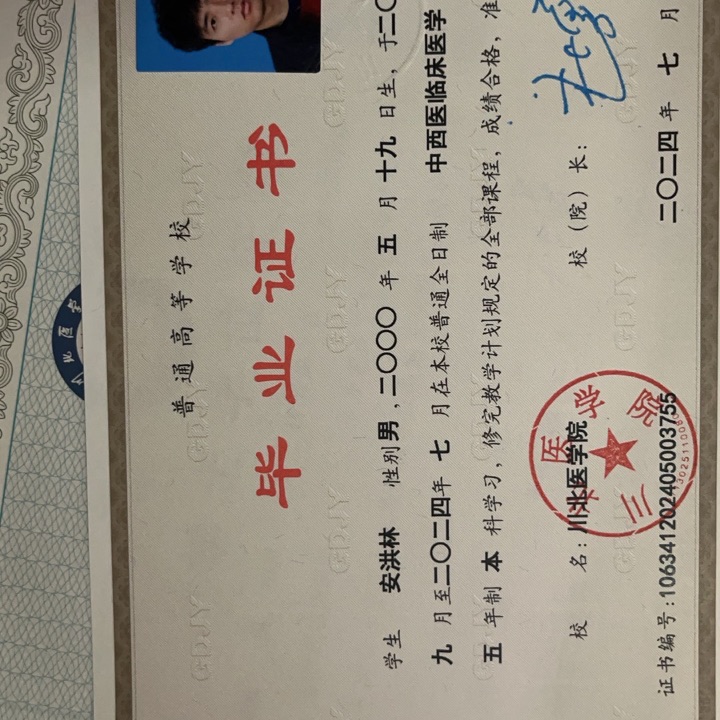 普通高等学校
毕业证书
学生 安洪林 性别 男，二〇〇〇年 五 月 十九 日生，于二〇
九 月至二〇二四年 七 月在本校普通全日制 中西医临床医学
五 年制 本 科学习，修完教学计划规定的全部课程，成绩合格，准
校 名：川北医学院 校（院）长：
证书编号：106341202405003755 二〇二四 年 七 月